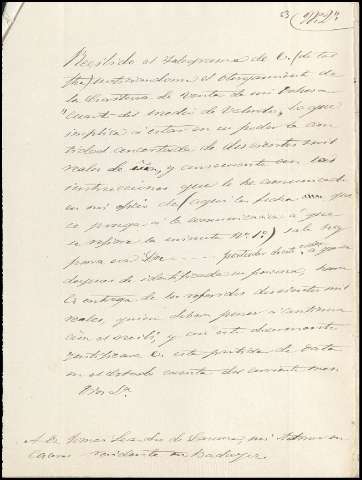 Recibido el telegrama de V. (de tal
fha) autorizandome el otorgamiento de
la Escritura de venta de mi Dehesa
"Cuarto del medio de Valverde", lo que
implica á estar en su poder la can-
tidad concertada de doscientos mil
reales de vn, y consecuente con las
instrucciones que le he comunicado
en mi oficio de (aquí la fecha que
se ponga á la comunicacion á que
se refiere la minuta Nº 1º) sale hoy
para esa Dn portador de esta, á quien
despues de identificada su persona, hará
V. entrega de los referidos doscientos mil
reales, quien deberá poner á continua-
cion el recibi y con este documento
justificará V. esta partida de data
en el de cuenta del corriente mes
Dios &a
A Dn Tomas de mi en
Caceres residente en Badajoz.